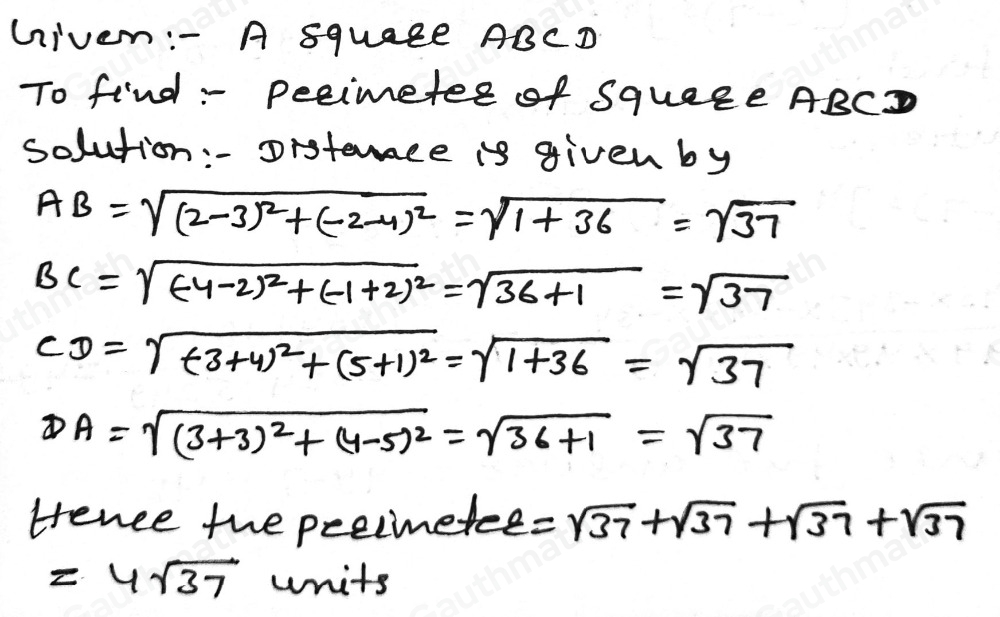 Given:- A square ABCD
To find:- Perimeter of Square ABCD
Solution:- Distance is given by
AB = √(2-3)²+(-2-4)² = √1+36 = √37
BC = √(-4-2)²+(-1+2)² = √36+1 = √37
CD = √(-3+4)²+(5+1)² = √1+36 = √37
DA = √(3+3)²+(4-5)² = √36+1 = √37
Hence the perimeter = √37+√37+√37+√37
= 4√37 units